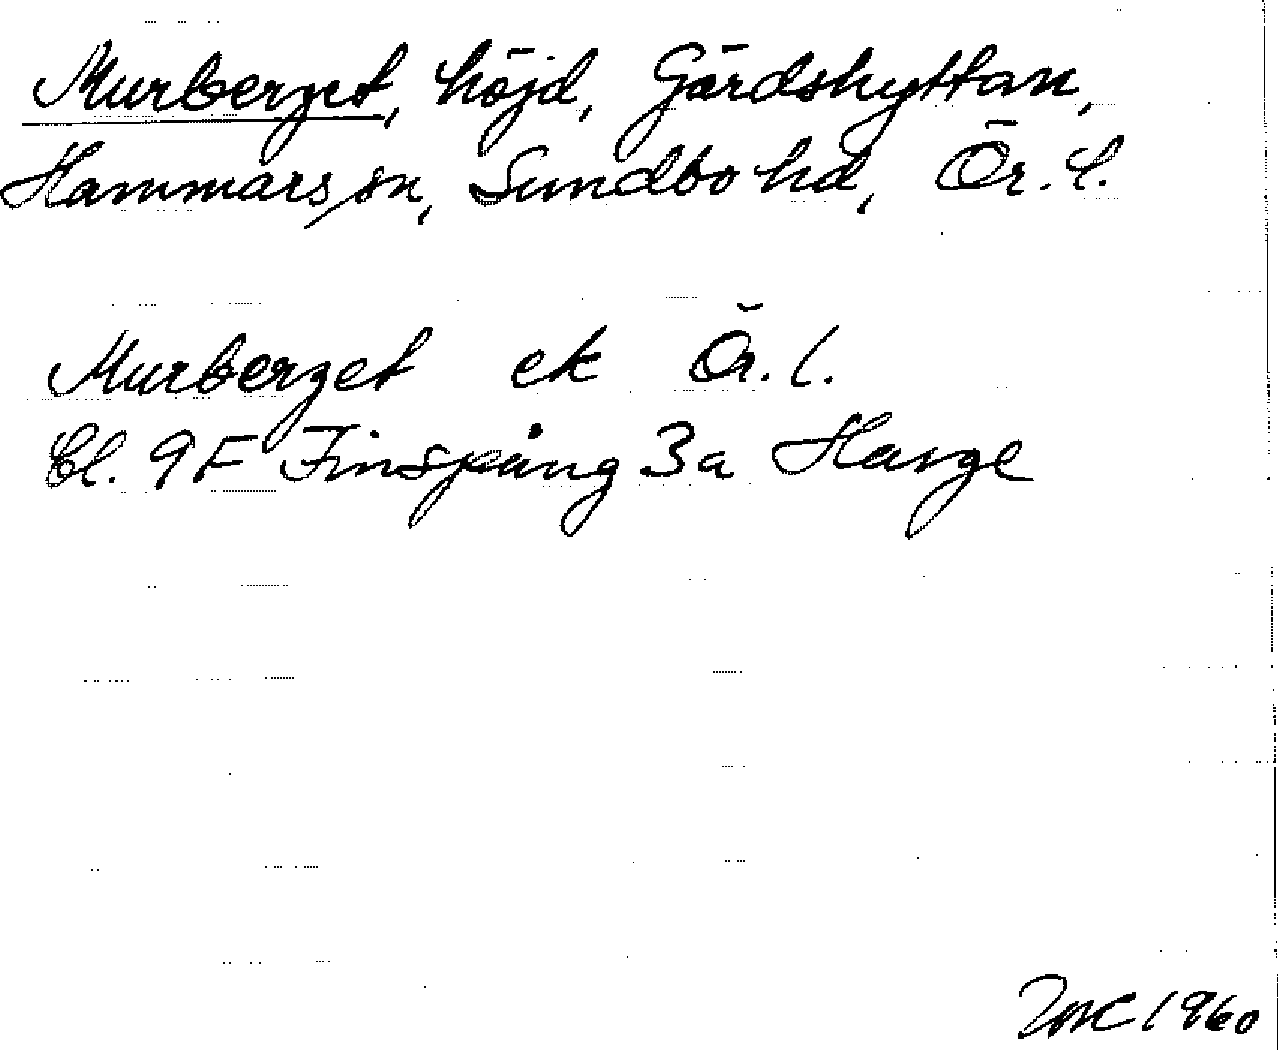 Murberget, höjd, Gårdshyttan,
Hammars sn, Sundbo hd, Ör. l.
Murberget ek Ör. l.
Bl. 9F Finspång 3a Harge
1960